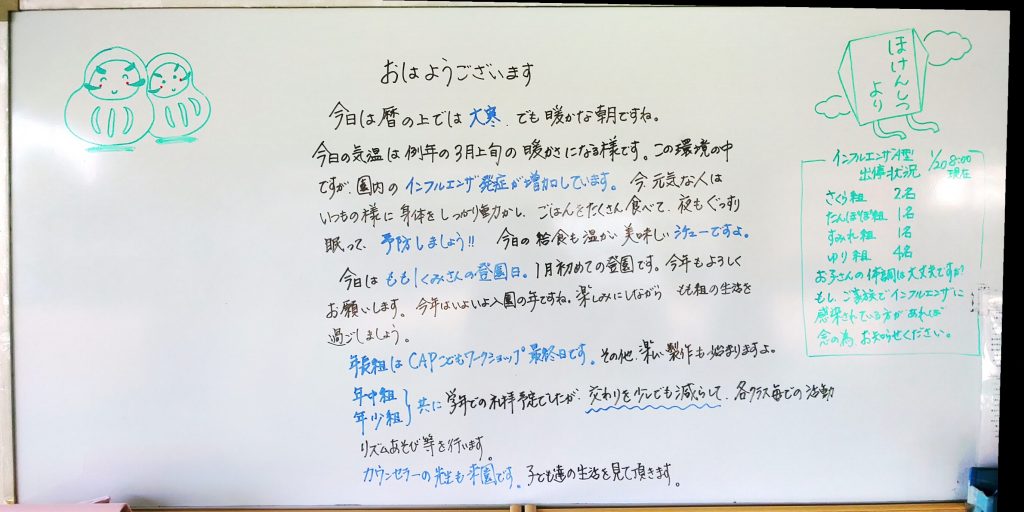 おはようございます
今日は暦の上では大寒、でも暖かな朝ですね。
今日の気温は例年の3月上旬の暖かさになる様です。この環境の中
ですが、園内のインフルエンザ発症が増加しています。今元気な人は
いつもの様に身体をしっかり動かし、ごはんをたくさん食べて、夜もぐっすり
眠って、予防しましょう!! 今日の給食も温かい美味しいシチューですよ。
今日はもも1くみさんの登園日。1月初めての登園です。今年もよろしく
お願いします。今年はいよいよ入園の年ですね。楽しみにしながら もも組の生活を
過ごしましょう。
年長組はCAPこどもワークショップ最終日です。その他、楽しい製作も始まりますよ。
年中組
年少組
共に 学年での礼拝予定でしたが、交わりを少しでも減らして、各クラス毎での活動
リズムあそび等を行います。
カウンセラーの先生も来園です。子ども達の生活を見て頂きます。
ほけんしつ
より
インフルエンザA型
出停状況 1/20 8:00
現在
さくら組 2名
たんぽぽ組 1名
すみれ組 1名
ゆり組 4名
お子さんの体調は大丈夫ですか?
もし、ご家族でインフルエンザに
感染されている方があれば
念の為、お知らせください。